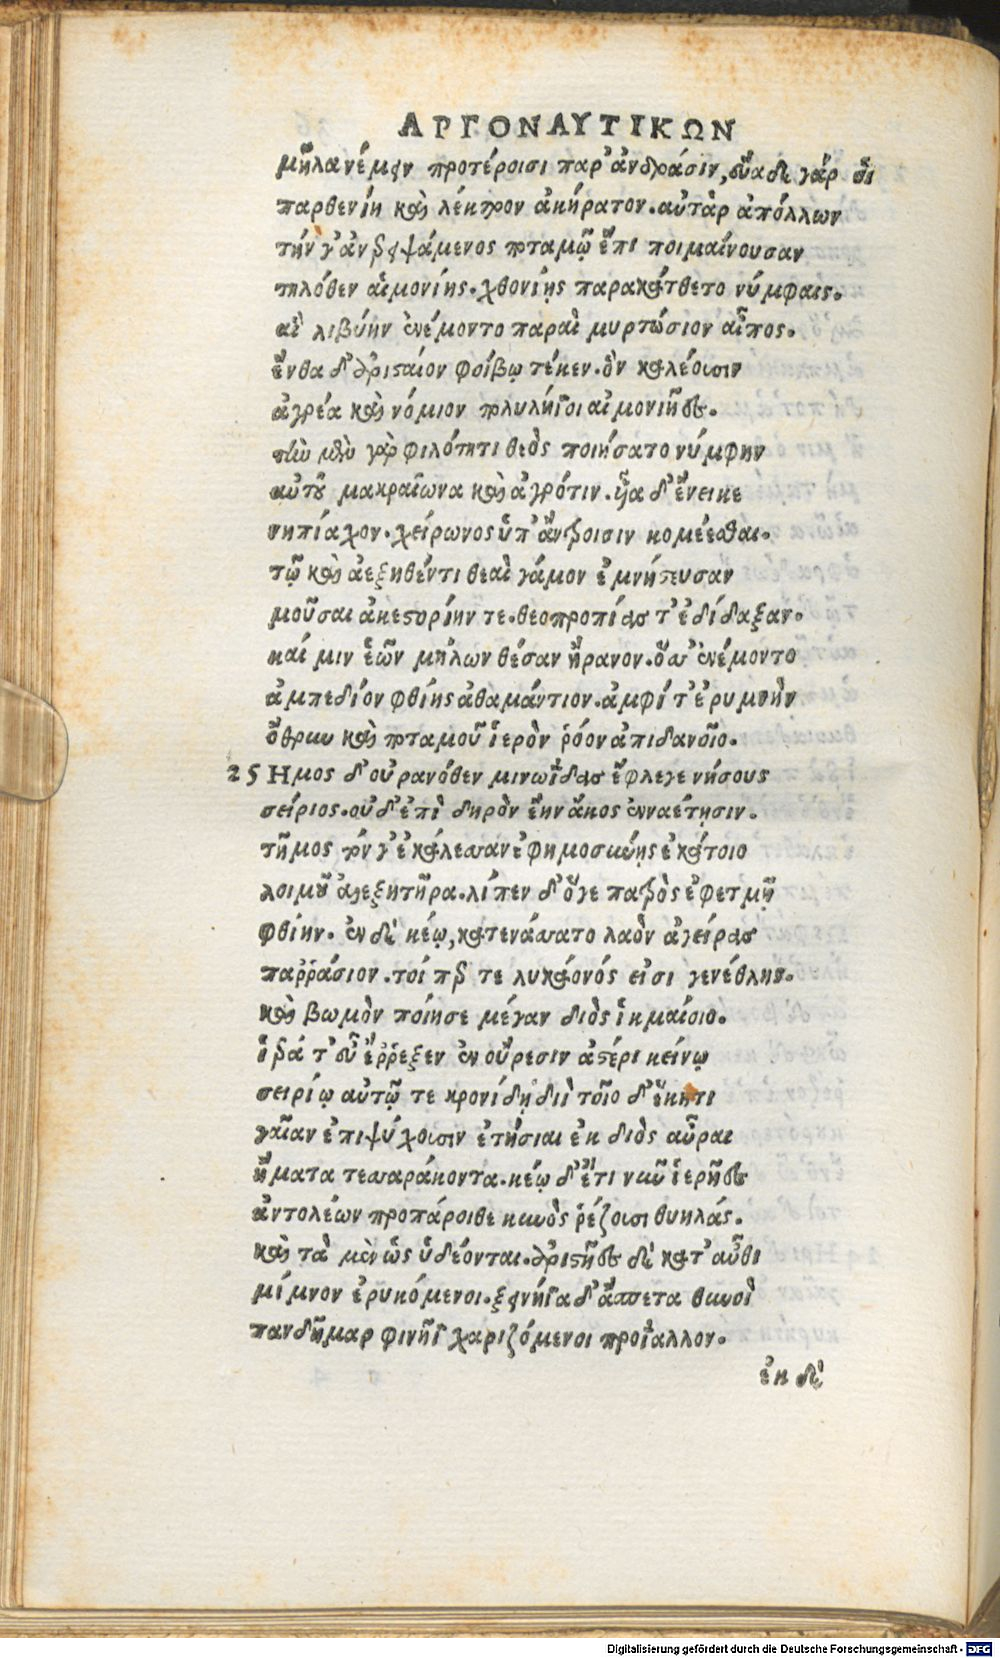 ΑΡΓΟΝΑΥΤΙΚΩΝ
μῆλα νέμειν προτέροισι παρ' ἀνδράσιν, εὔαδε γάρ οἱ
παρθενίη καὶ λέκτρον ἀκήρατον. αὐτὰρ ἀπόλλων
τήν γ' ἀνερειψάμενος ποταμῷ ἔπι ποιμαίνουσαν
τηλόθεν αἱμονίης. χθονίῃς παρακάτθετο νύμφαις.
αἳ λιβύην ἐνέμοντο παραὶ μυρτώσιον αἶπος.
ἔνθα δ' ἀρισταῖον φοίβῳ τέκεν. ὃν καλέουσιν
ἀγρέα καὶ νόμιον πολυλήϊοι αἱμονιῆες.
τὴν μὲν γὰρ φιλότητι θεὸς ποιήσατο νύμφην
αὐτοῦ μακραίωνα καὶ ἀγρότιν. υἷα δ' ἔνεικε
νηπίαχον. χείρωνος ὑπ' ἄντροισιν κομέεσθαι.
τῷ καὶ ἀεξηθέντι θεαὶ γάμον ἐμνήστευσαν
μοῦσαι ἀκεστορίην τε. θεοπροπίας τ' ἐδίδαξαν.
καί μιν ἑῶν μήλων θέσαν ἤρανον. ὅσσ' ἐνέμοντο
ἀμπεδίον φθίης ἀθαμάντιον. ἀμφί τ' ἐρυμνὴν
ὄθρυν καὶ ποταμοῦ ἱερὸν ῥόον ἀπιδανοῖο.
25 Ημος δ' οὐρανόθεν μινωΐδας ἔφλεγε νήσους
σείριος. οὐδ' ἐπὶ δηρὸν ἔην ἄκος ἐνναέτῃσιν.
τῆμος τόν γ' ἐκάλεσσαν ἐφημοσύνῃς ἑκάτοιο
λοιμοῦ ἀλεξητῆρα. λίπεν δ' ὅγε πατρὸς ἐφετμῇ
φθίην. ἐν δὲ κέῳ, κατενάσσατο λαὸν ἀγείρας
παρῤῥάσιον. τοί περ τε λυκάονός εἰσι γενέθλης.
καὶ βωμὸν ποίησε μέγαν διὸς ἱκμαίοιο.
ἱρά τ' εὖ ἔῤῥεξεν ἐν οὔρεσιν ἀστέρι κείνῳ
σειρίῳ αὐτῷ τε κρονίδῃ διῒ τοῖο δ' ἕκητι
γαῖαν ἐπιψύχουσιν ἐτήσιαι ἐκ διὸς αὖραι
ἤματα τεσσαράκοντα. κέῳ δ' ἔτι νῦν ἱερῆες
ἀντολέων προπάροιθε κυνὸς ῥέζουσι θυηλάς.
καὶ τὰ μὲν ὣς ὑδέονται. ἀριστῆες δὲ κατ' αὖθι
μίμνον ἐρυκόμενοι. ξεινήϊα δ' ἄσπετα θυνοὶ
πανδῆμαρ φινῆϊ χαριζόμενοι προΐαλλον.
ἐκ δὲ
Digitalisierung gefördert durch die Deutsche Forschungsgemeinschaft - DFG